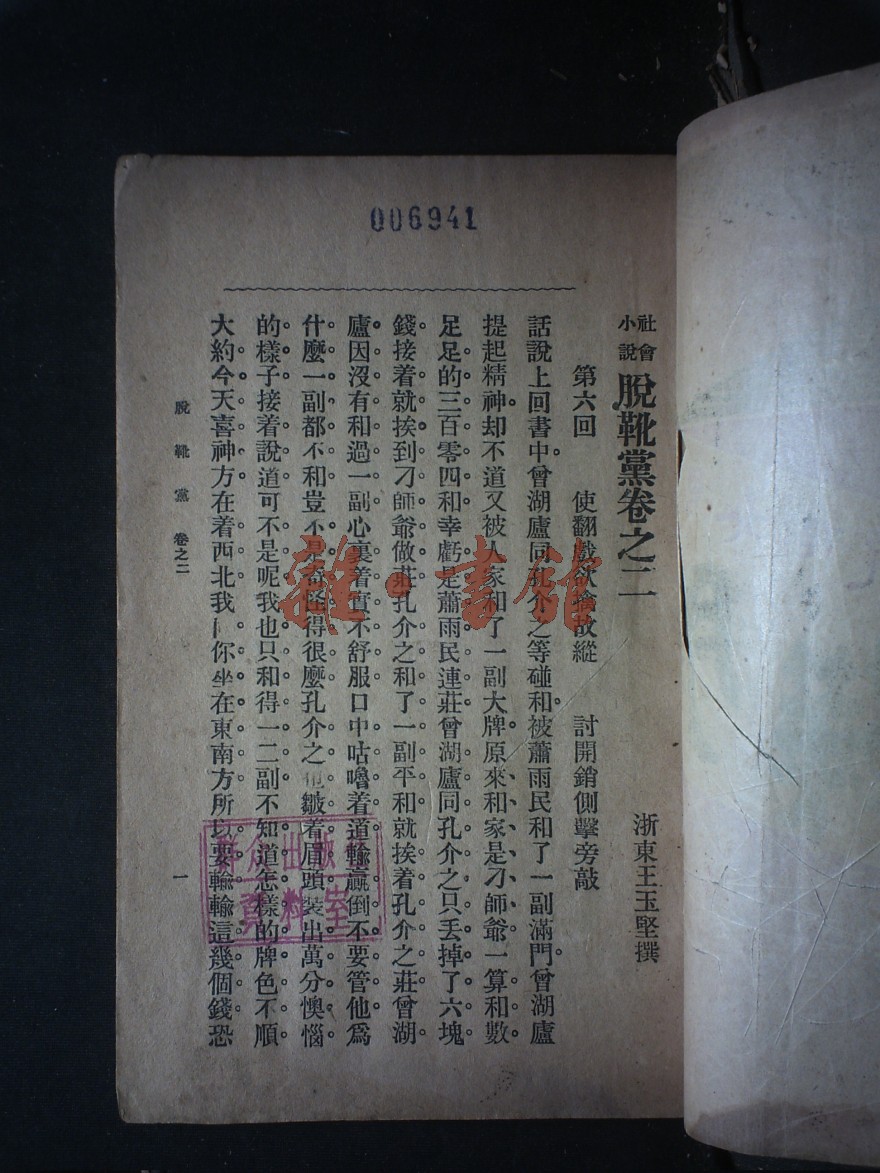 006941
社會
小說
脫靴黨卷之二
浙東王玉堅撰
第六回 使翻戲欲擒故縱 討開銷側擊旁敲
話說上回書中。曾湖廬同孔介之等碰和。被蕭雨民和了一副滿門。曾湖廬
提起精神。却不道又被人家和了一副大牌。原來和家是刁師爺。一算和數。
足足的三百零四和。幸虧是蕭雨民連莊。曾湖廬同孔介之只丟掉了六塊
錢。接着就挨到刁師爺做莊。孔介之和了一副平和。就挨着孔介之莊。曾湖
廬因沒有和過一副。心裏着實不舒服。口中咕嚕着道。輸贏倒不要管他。爲
什麼一副都不和。豈不是奇怪得很麼。孔介之皺着眉頭。裝出萬分懊惱
的樣子。接着說道。可不是呢。我也只和得一二副。不知道怎樣的牌色不順。
大約今天喜神方在着西北。我你坐在東南方。所以要輸。輸這幾個錢。恐
脫靴黨 卷之二
一
雜·書館
群众出版社
資料室